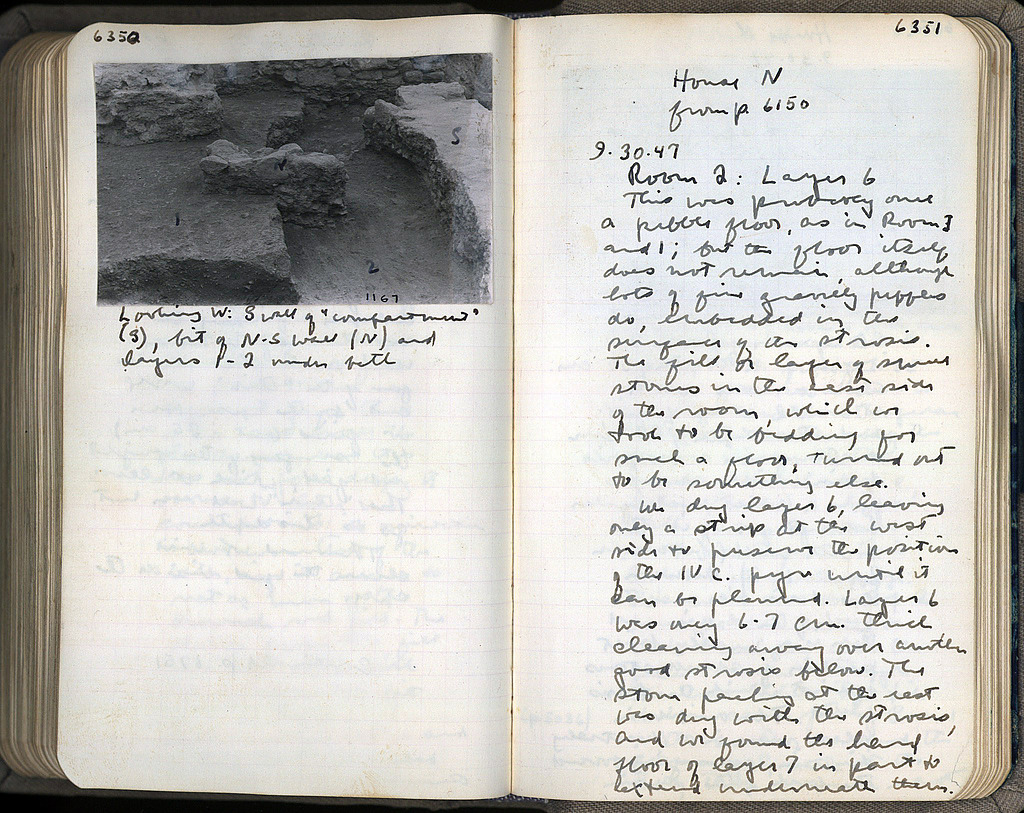 6350
S
N
1
2
1167
Looking W: S wall of "compartment"
(S), bit of N-S wall (N) and
layers 1-2 under both
6351
House N
from p. 6150
9.30.47
Room 2: Layer 6
This was probably once
a pebble floor, as in Room 3
and 1; but the floor itself
does not remain, although
lots of fine gravelly pebbles
do, embedded in the
surface of the strosis.
The fill or layer of small
stones in the east side
of the room, which we
took to be bedding for
such a floor, turned out
to be something else.
We dug layer 6, leaving
only a strip at the west
side to preserve the position
of the IV c. pyre until it
can be planned. Layer 6
was only 6-7 cm. thick
cleaning away over another
good strosis below. The
stone packing at the east
was dug with the strosis,
and we found the hard
floor of layer 7 in part to
extend underneath them.